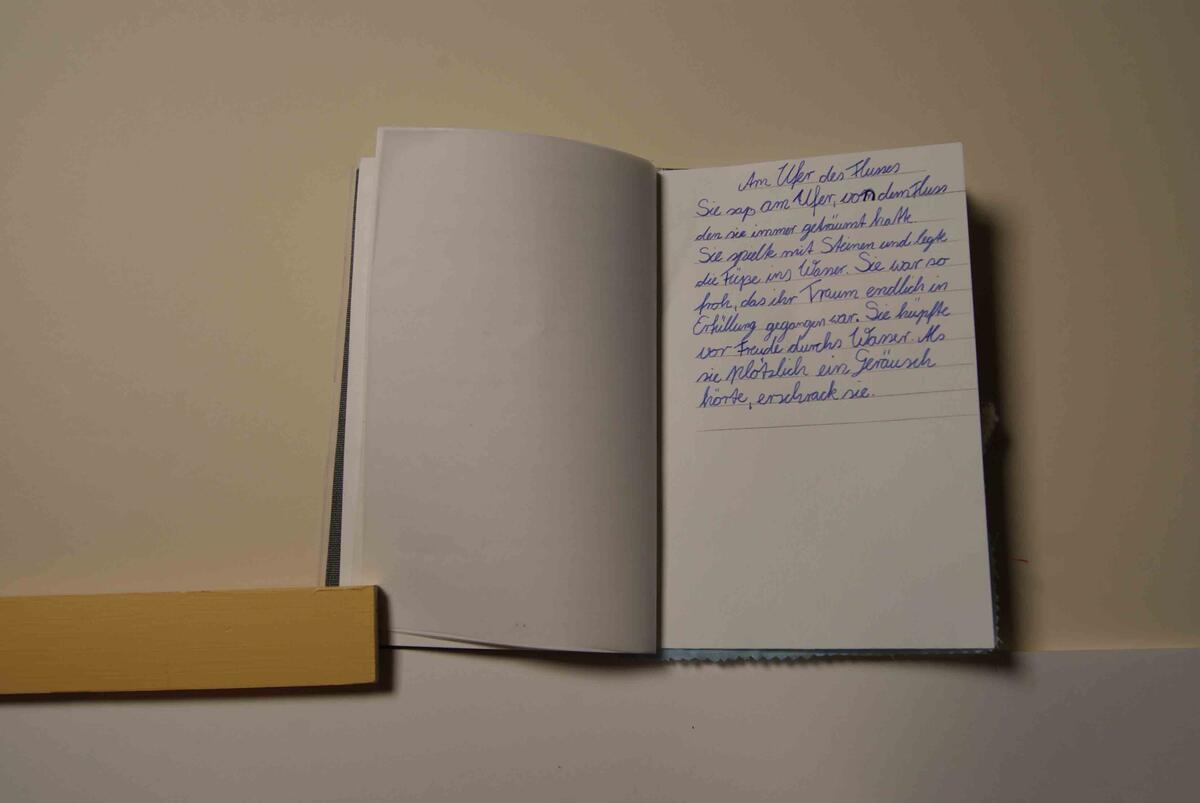 Am Ufer des Flusses
Sie saß am Ufer, von dem Fluss
den sie immer geträumt hatte.
Sie spielte mit Steinen und legte
die Füße ins Wasser. Sie war so
froh, das ihr Traum endlich in
Erfüllung gegangen war. Sie hüpfte
vor Freude durchs Wasser. Als
sie plötzlich ein Geräusch
hörte, erschrack sie.